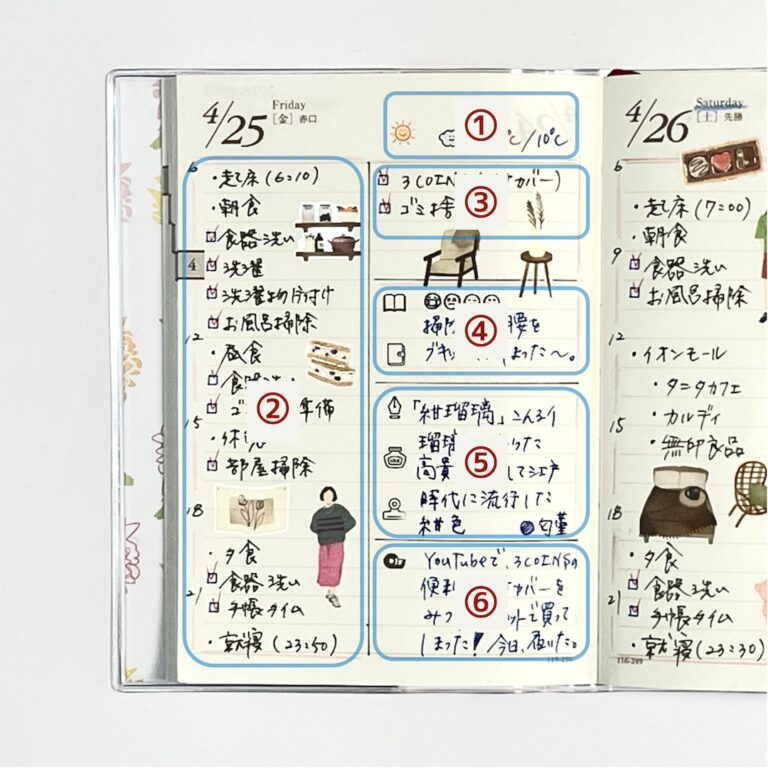 4/25 Friday
[金] 赤口
①
℃/10℃
6
・起床(6:10)
・朝食
食器洗い
4
洗濯
洗濯物片付け
お風呂掃除
12
・昼食
②
準備
15
部屋掃除
18
・夕食
食器洗い
21
手帳タイム
・就寝(23:50)
3COINS カバー)
ゴミ捨
③
④
腰を
った〜。
「紺瑠璃」こんるり
瑠璃 った
高貴 して江戸
⑤
時代に流行した
紺色 匂菫
YouTubeで、3COINSの
便利 カバーを
みつ ットで買って
⑥
しまった! 今日、届いた。
4/26 Saturday
[土] 先勝
6
・起床(7:00)
・朝食
9
食器洗い
お風呂掃除
12
・イオンモール
・タニタカフェ
・カルディ
15
・無印良品
18
・夕食
食器洗い
21
手帳タイム
・就寝(23:30)
116-249